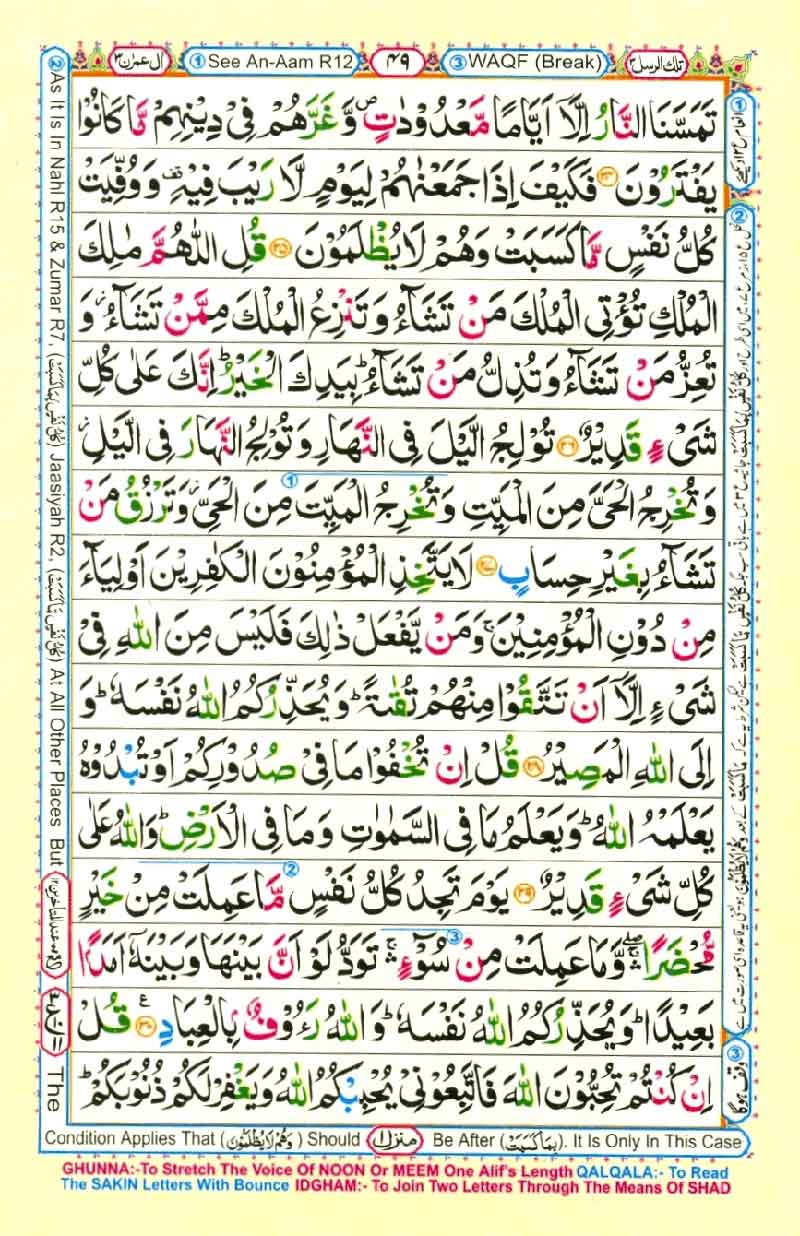 اٰل عمرٰن ٣
① See An-Aam R12
٤٩
③ WAQF (Break)
تلك الرسل ٣
تَمَسَّنَا النَّارُ اِلَّاۤ اَيَّامًا مَّعْدُوْدٰتٍ ۪ وَّغَرَّهُمْ فِىْ دِيْنِهِمْ مَّا كَانُوْا
يَفْتَرُوْنَ ۟۲۴ فَكَيْفَ اِذَا جَمَعْنٰهُمْ لِيَوْمٍ لَّا رَيْبَ فِيْهِ ۟ وَوُفِّيَتْ
كُلُّ نَفْسٍ مَّا كَسَبَتْ وَهُمْ لَا يُظْلَمُوْنَ ۟۲۵ قُلِ اللّٰهُمَّ مٰلِكَ
الْمُلْكِ تُؤْتِى الْمُلْكَ مَنْ تَشَآءُ وَتَنْزِعُ الْمُلْكَ مِمَّنْ تَشَآءُ ؗ وَ
تُعِزُّ مَنْ تَشَآءُ وَتُذِلُّ مَنْ تَشَآءُ ؕ بِيَدِكَ الْخَيْرُ ؕ اِنَّكَ عَلٰى كُلِّ
شَىْءٍ قَدِيْرٌ ۟۲۶ تُوْلِجُ الَّيْلَ فِى النَّهَارِ وَتُوْلِجُ النَّهَارَ فِى الَّيْلِ ؗ
وَتُخْرِجُ الْحَىَّ مِنَ الْمَيِّتِ وَتُخْرِجُ الْمَيِّتَ مِنَ الْحَىِّ ؗ وَتَرْزُقُ مَنْ
تَشَآءُ بِغَيْرِ حِسَابٍ ۟۲۷ لَا يَتَّخِذِ الْمُؤْمِنُوْنَ الْكٰفِرِيْنَ اَوْلِيَآءَ
مِنْ دُوْنِ الْمُؤْمِنِيْنَ ۚ وَمَنْ يَّفْعَلْ ذٰلِكَ فَلَيْسَ مِنَ اللّٰهِ فِىْ
شَىْءٍ اِلَّاۤ اَنْ تَتَّقُوْا مِنْهُمْ تُقٰىةً ؕ وَيُحَذِّرُكُمُ اللّٰهُ نَفْسَهٗ ؕ وَ
اِلَى اللّٰهِ الْمَصِيْرُ ۟۲۸ قُلْ اِنْ تُخْفُوْا مَا فِىْ صُدُوْرِكُمْ اَوْ تُبْدُوْهُ
يَعْلَمْهُ اللّٰهُ ؕ وَيَعْلَمُ مَا فِى السَّمٰوٰتِ وَمَا فِى الْاَرْضِ ؕ وَاللّٰهُ عَلٰى
كُلِّ شَىْءٍ قَدِيْرٌ ۟۲۹ يَوْمَ تَجِدُ كُلُّ نَفْسٍ مَّا عَمِلَتْ مِنْ خَيْرٍ
مُّحْضَرًا ۛۖۚ وَّمَا عَمِلَتْ مِنْ سُوْٓءٍ ۛۚ تَوَدُّ لَوْ اَنَّ بَيْنَهَا وَبَيْنَهٗۤ اَمَدًۢا
بَعِيْدًا ؕ وَيُحَذِّرُكُمُ اللّٰهُ نَفْسَهٗ ؕ وَاللّٰهُ رَءُوْفٌۢ بِالْعِبَادِ ۟۳۰ قُلْ
اِنْ كُنْتُمْ تُحِبُّوْنَ اللّٰهَ فَاتَّبِعُوْنِىْ يُحْبِبْكُمُ اللّٰهُ وَيَغْفِرْ لَكُمْ ذُنُوْبَكُمْ ؕ
② As It Is In Nahl R15 & Zumar R7, (كُلُّ نَفْسٍ بِمَا كَسَبَتْ) Jaasiyah R2, (كُلُّ نَفْسٍ مَّا كَسَبَتْ) At All Other Places But The
Condition Applies That (وَهُمْ لَا يُظْلَمُوْنَ) Should منزل١ Be After (بِمَا كَسَبَتْ). It Is Only In This Case
③ وقف ہوگا
GHUNNA:-To Stretch The Voice Of NOON Or MEEM One Alif's Length QALQALA:- To Read
The SAKIN Letters With Bounce IDGHAM:- To Join Two Letters Through The Means Of SHAD